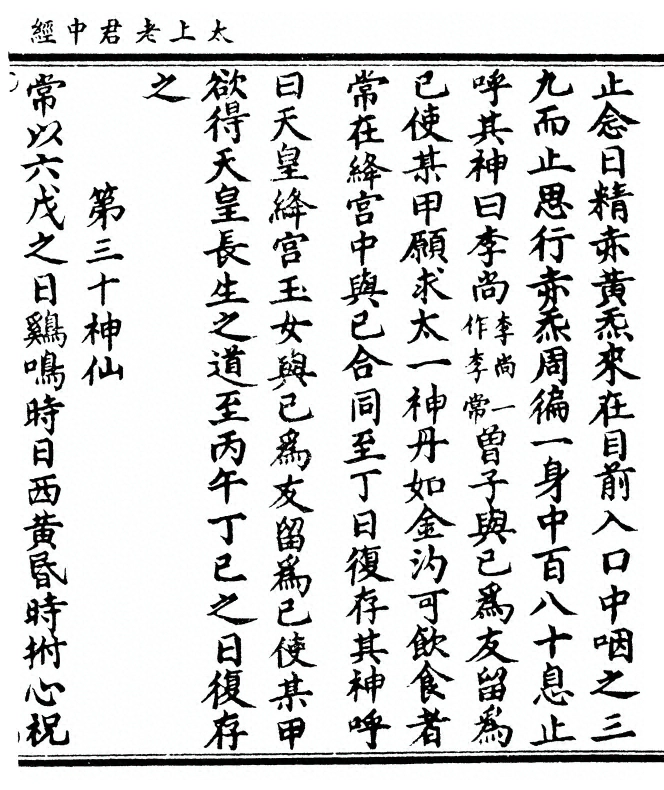 太上老君中經
止念日精赤黃炁來在目前入口中咽之三
九而止思行赤炁周徧一身中百八十息止
呼其神曰李尚李尚一作李常曾子與己爲友留爲
己使某甲願求太一神丹如金沟可飲食者
常在絳宮中與己合同至丁日復存其神呼
曰天皇絳宮玉女與己爲友留爲己使某甲
欲得天皇長生之道至丙午丁巳之日復存
之
第三十神仙
常以六戊之日鷄鳴時日西黃昬時拊心祝